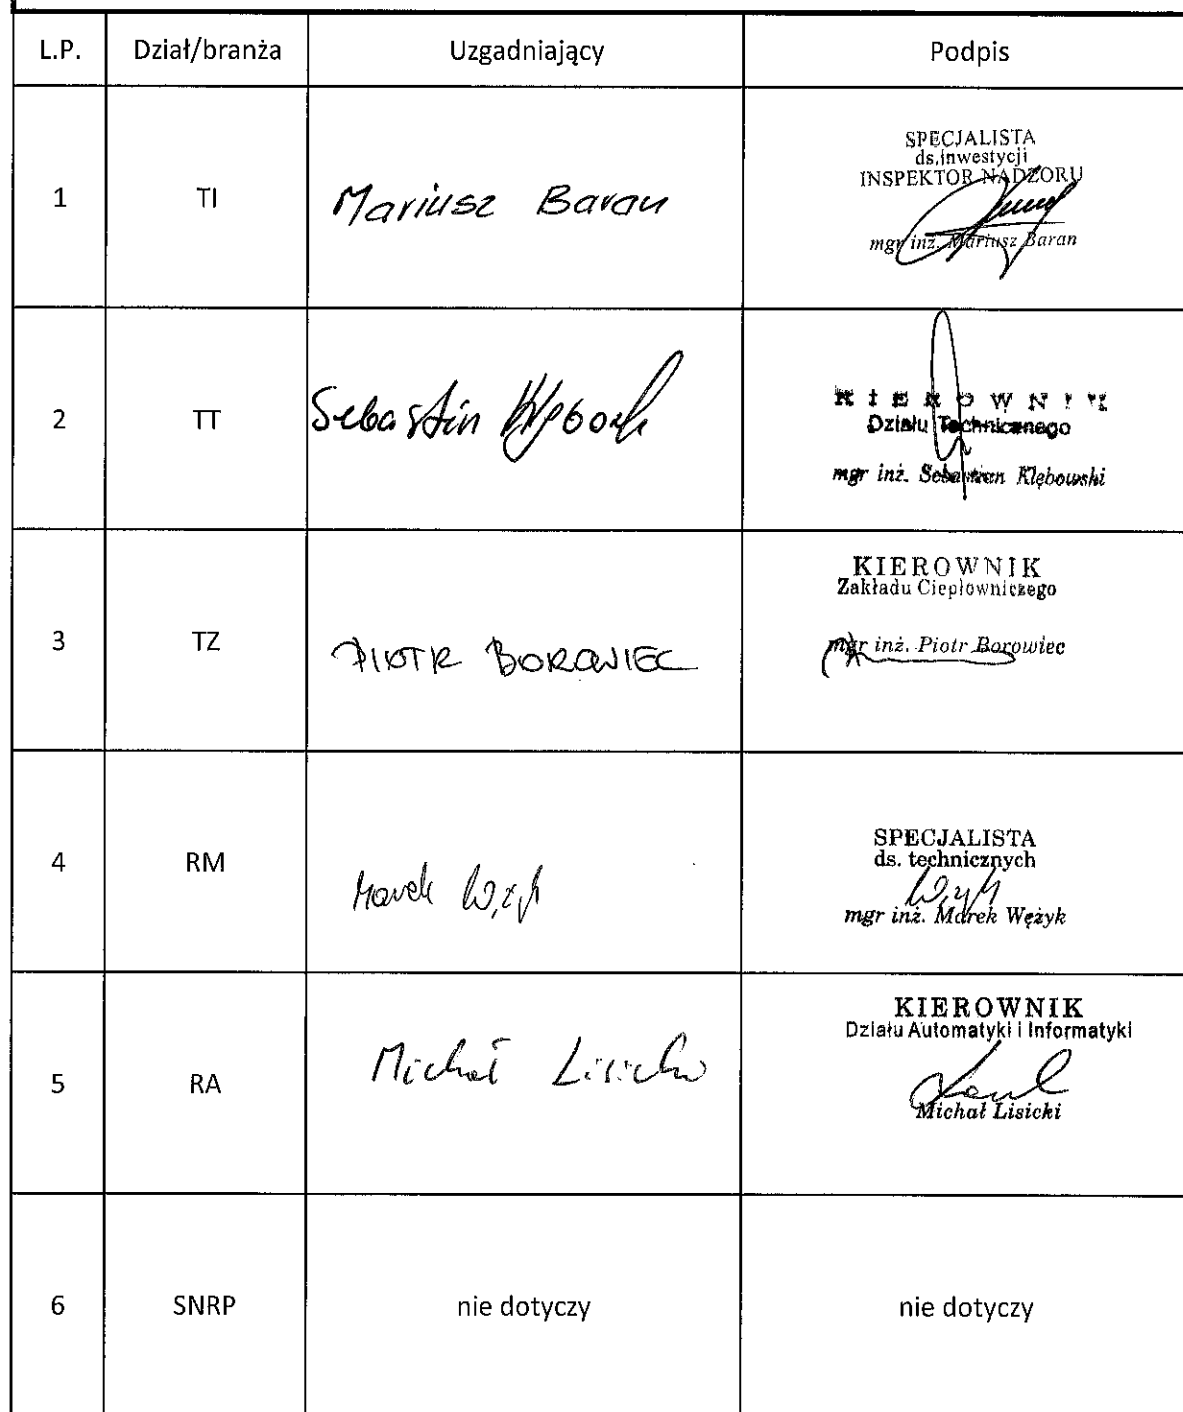 L.P. Dział/branża Uzgadniający Podpis
1 TI Mariusz Baran
SPECJALISTA
ds.inwestycji
INSPEKTOR NADZORU
mgr inż. Mariusz Baran
2 TT Sebastin
KIEROWNIK
Działu Technicznego
mgr inż. Sebastian Klębowski
3 TZ PIOTR BOROWIEC
KIEROWNIK
Zakładu Ciepłowniczego
mgr inż. Piotr Borowiec
4 RM Marek
SPECJALISTA
ds. technicznych
mgr inż. Marek Wężyk
5 RA Michał Lisicki
KIEROWNIK
Działu Automatyki i Informatyki
Michał Lisicki
6 SNRP nie dotyczy nie dotyczy